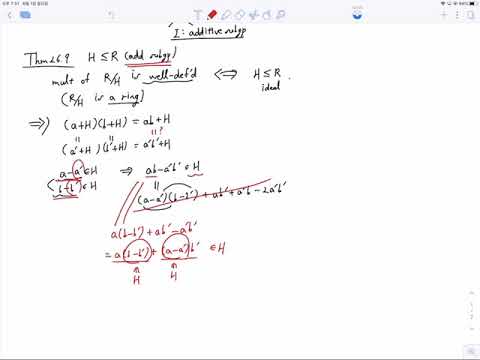 I : additive subgp
Thm 26.9 H ≤ R (add subgp)
mult of R/H is well-def'd ⟺ H ≤ R.
(R/H is a ring) ideal
⇒) (a+H)(b+H) = ab+H
|| || ||?
(a'+H) (b'+H) = a'b'+H
a-a' ∈ H ⇒ ab-a'b' ∈ H
b-b' ∈ H ||
(a-a')(b-b') + ab' + a'b - 2a'b'
a(b-b') + ab' - a'b'
= a(b-b') + (a-a')b' ∈ H
H H